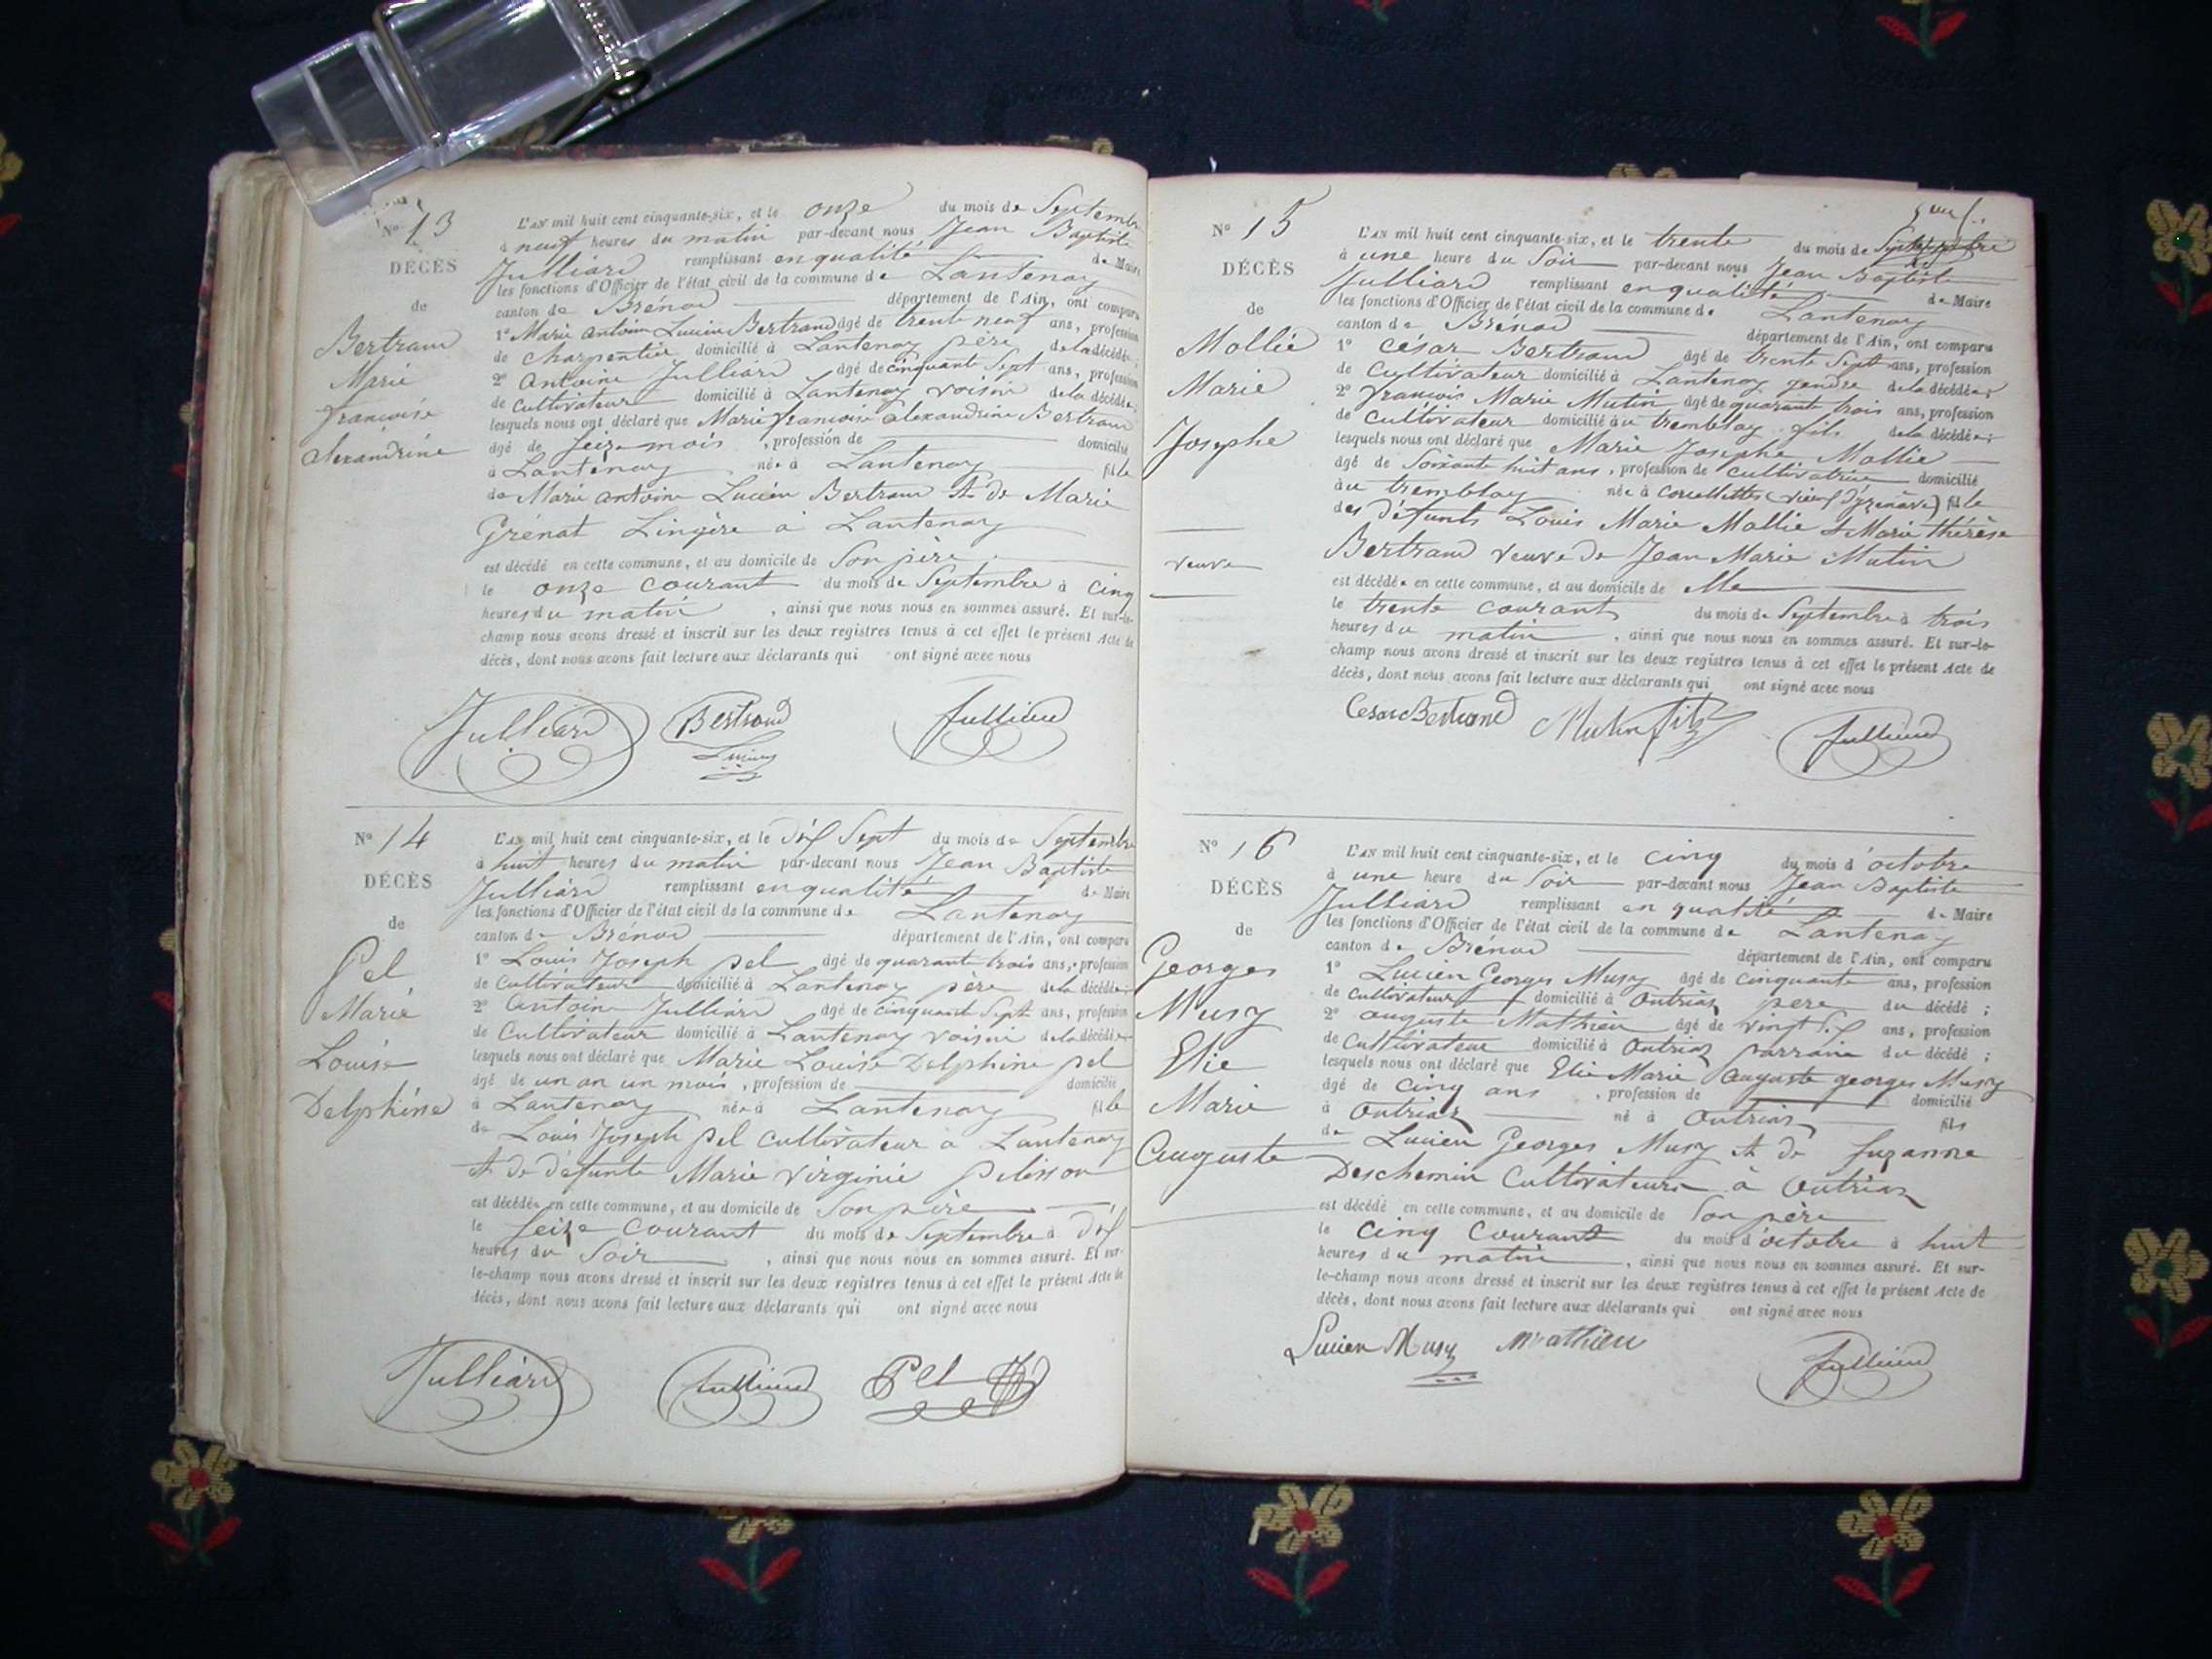 N° 13
DÉCÈS
de
Bertrand
Marie
françoise
alexandrine
L'AN mil huit cent cinquante-six, et le onze du mois de Septembre
à neuf heures du matin par-devant nous Jean Baptiste
Julliard remplissant en qualité de Maire
les fonctions d'Officier de l'état civil de la commune de Lantenay
canton de Brénod département de l'Ain, ont comparu
1° Marie antoine Lucien Bertrand âgé de trente neuf ans, profession
de charpentier domicilié à Lantenay père de la décédée;
2° antoine Julliard âgé de cinquante Sept ans, profession
de cultivateur domicilié à Lantenay voisin de la décédée;
lesquels nous ont déclaré que Marie françoise alexandrine Bertrand
âgé de Seize mois, profession de domicilié
à Lantenay née à Lantenay fille
de Marie antoine Lucien Bertrand et de Marie
Grénat Lingère à Lantenay
est décédé en cette commune, et au domicile de Son père
le onze courant du mois de Septembre à cinq
heures du matin, ainsi que nous nous en sommes assuré. Et sur-le-
champ nous avons dressé et inscrit sur les deux registres tenus à cet effet le présent Acte de
décès, dont nous avons fait lecture aux déclarants qui ont signé avec nous
Julliard Bertrand Julliard
Lucien
N° 14
DÉCÈS
de
Pel
Marie
Louise
Delphine
L'AN mil huit cent cinquante-six, et le dix Sept du mois de Septembre
à huit heures du matin par-devant nous Jean Baptiste
Julliard remplissant en qualité de Maire
les fonctions d'Officier de l'état civil de la commune de Lantenay
canton de Brénod département de l'Ain, ont comparu
1° Louis Joseph pel âgé de quarante trois ans, profession
de cultivateur domicilié à Lantenay père de la décédée;
2° antoine Julliard âgé de cinquante Sept ans, profession
de Cultivateur domicilié à Lantenay voisin de la décédée
lesquels nous ont déclaré que Marie Louise Delphine pel
âgé de un an un mois, profession de domicilié
à Lantenay née à Lantenay fille
de Louis Joseph pel cultivateur à Lantenay
et de défunte Marie virginie pelisson
est décédée en cette commune, et au domicile de Son père
le Seize courant du mois de Septembre à dix
heures du Soir, ainsi que nous nous en sommes assuré. Et sur-
le-champ nous avons dressé et inscrit sur les deux registres tenus à cet effet le présent Acte de
décès, dont nous avons fait lecture aux déclarants qui ont signé avec nous
Julliard Julliard Pel
N° 15
DÉCÈS
de
Mollie
Marie
Josephe
veuve
L'AN mil huit cent cinquante-six, et le trente du mois de Septembre
à une heure du Soir par-devant nous Jean Baptiste
Julliard remplissant en qualité de Maire
les fonctions d'Officier de l'état civil de la commune de Lantenay
canton de Brénod département de l'Ain, ont comparu
1° César Bertrand âgé de trente Sept ans, profession
de Cultivateur domicilié à Lantenay gendre de la décédée;
2° françois Marie Mutin âgé de quarante trois ans, profession
de cultivateur domicilié au tremblay fils de la décédée;
lesquels nous ont déclaré que Marie Josephe Mollie
âgé de Soixante huit ans, profession de cultivatrice domicilié
au tremblay née à corcellettes (vieux d'yzenave) fille
des défunts Louis Marie Mollie et Marie thérèse
Bertrand veuve de Jean Marie Mutin
est décédée en cette commune, et au domicile de Elle
le trente courant du mois de Septembre à trois
heures du matin, ainsi que nous nous en sommes assuré. Et sur-le-
champ nous avons dressé et inscrit sur les deux registres tenus à cet effet le présent Acte de
décès, dont nous avons fait lecture aux déclarants qui ont signé avec nous
Cesar Bertrand Mutin fils Julliard
N° 16
DÉCÈS
de
Georges
Musy
Elie
Marie
Auguste
L'AN mil huit cent cinquante-six, et le cinq du mois d'octobre
à une heure du Soir par-devant nous Jean Baptiste
Julliard remplissant en qualité de Maire
les fonctions d'Officier de l'état civil de la commune de Lantenay
canton de Brénod département de l'Ain, ont comparu
1° Lucien Georges Musy âgé de cinquante ans, profession
de cultivateur domicilié à Outriaz père du décédé;
2° auguste Mathieu âgé de vingt Six ans, profession
de Cultivateur domicilié à Outriaz parrain du décédé;
lesquels nous ont déclaré que Elie Marie Auguste georges Musy
âgé de cinq ans, profession de domicilié
à Outriaz né à Outriaz fils
de Lucien Georges Musy et de Suzanne
Deschemin Cultivateurs à Outriaz
est décédé en cette commune, et au domicile de Son père
le cinq Courant du mois d'octobre à huit
heures du matin, ainsi que nous nous en sommes assuré. Et sur-
le-champ nous avons dressé et inscrit sur les deux registres tenus à cet effet le présent Acte de
décès, dont nous avons fait lecture aux déclarants qui ont signé avec nous
Lucien Musy Mathieu Julliard